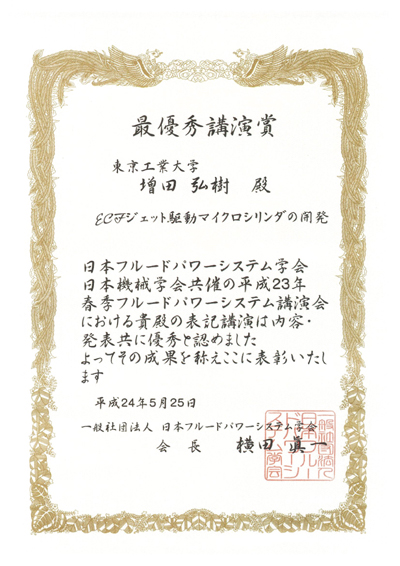 最優秀講演賞
東京工業大学
増田 弘樹 殿
ECFジェット駆動マイクロシリンダの開発
日本フルードパワーシステム学会
日本機械学会共催の平成23年
春季フルードパワーシステム講演会
における貴殿の表記講演は内容・
発表共に優秀と認めました
よってその成果を称えここに表彰いたし
ます
平成24年5月25日
一般社団法人 日本フルードパワーシステム学会
会長 横田 眞一